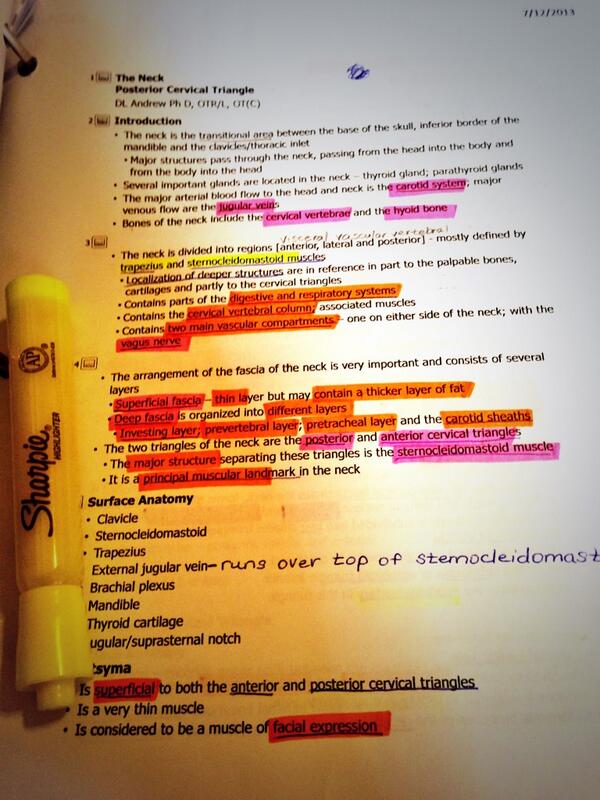 7/12/2013
1 The Neck
Posterior Cervical Triangle
DL Andrew Ph D, OTR/L, OT(C)
2 Introduction
• The neck is the transitional area between the base of the skull, inferior border of the
mandible and the clavicles/thoracic inlet
• Major structures pass through the neck, passing from the head into the body and
from the body into the head
• Several important glands are located in the neck – thyroid gland; parathyroid glands
• The major arterial blood flow to the head and neck is the carotid system; major
venous flow are the jugular veins
• Bones of the neck include the cervical vertebrae and the hyoid bone
visceral vascular vertebral
3
• The neck is divided into regions [anterior, lateral and posterior] - mostly defined by
trapezius and sternocleidomastoid muscles
• Localization of deeper structures are in reference in part to the palpable bones,
cartilages and partly to the cervical triangles
• Contains parts of the digestive and respiratory systems
• Contains the cervical vertebral column; associated muscles
• Contains two main vascular compartments – one on either side of the neck; with the
vagus nerve
4
• The arrangement of the fascia of the neck is very important and consists of several
layers
• Superficial fascia – thin layer but may contain a thicker layer of fat
• Deep fascia is organized into different layers
• Investing layer; prevertebral layer; pretracheal layer and the carotid sheaths
• The two triangles of the neck are the posterior and anterior cervical triangles
• The major structure separating these triangles is the sternocleidomastoid muscle
• It is a principal muscular landmark in the neck
Surface Anatomy
• Clavicle
• Sternocleidomastoid
• Trapezius
External jugular vein – runs over top of sternocleidomast
Brachial plexus
Mandible
Thyroid cartilage
ugular/suprasternal notch
tsyma
Is superficial to both the anterior and posterior cervical triangles
• Is a very thin muscle
• Is considered to be a muscle of facial expression
AP
Sharpie
HIGHLIGHTER